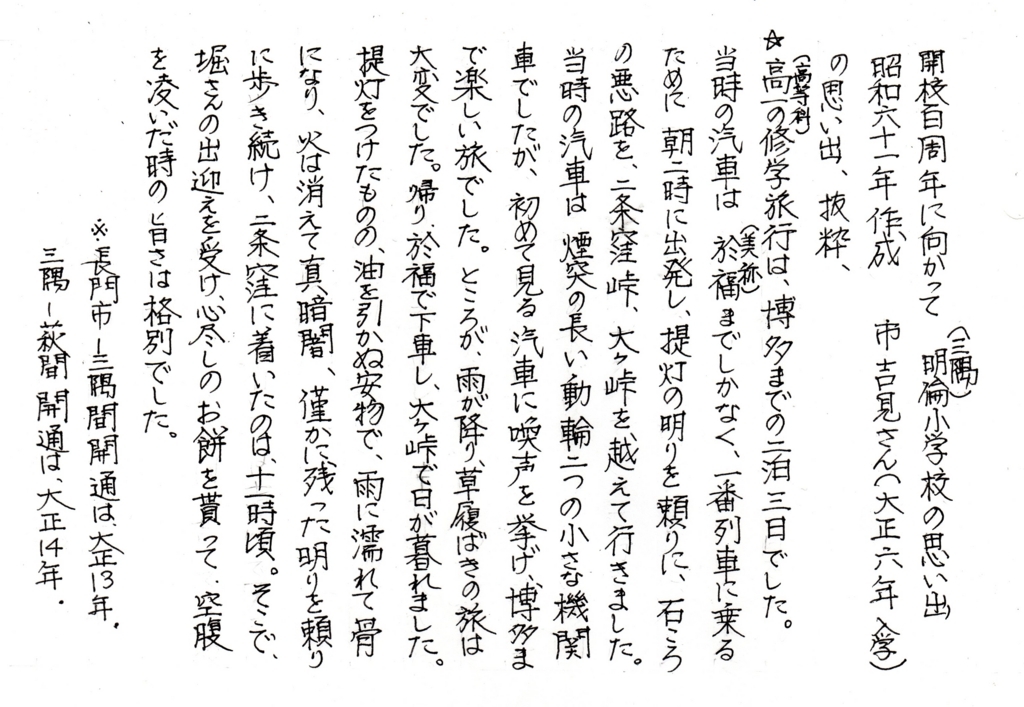 開校百周年に向かって　明倫小学校の思い出
(三隅)
昭和六十一年作成　市吉見さん(大正六年入学)
の思い出、抜粋、
(高等科)
☆高一の修学旅行は、博多までの二泊三日でした。
当時の汽車は　於福までしかなく、一番列車に乗る
(美祢)
ために朝二時に出発し、提灯の明りを頼りに、石ころ
の悪路を、二条窪峠、大ヶ峠を越えて行きました。
当時の汽車は煙突の長い動輪二つの小さな機関
車でしたが、初めて見る汽車に喚声を挙げ、博多ま
で楽しい旅でした。ところが、雨が降り、草履ばきの旅は
大変でした。帰り、於福で下車し、大ヶ峠で日が暮れました。
提灯をつけたものの、油を引かぬ安物で、雨に濡れて骨
になり、火は消えて真暗闇、僅かに残った明りを頼り
に歩き続け、二条窪に着いたのは、十一時頃。そこで、
堀さんの出迎えを受け、心尽しのお餅を貰って、空腹
を凌いだ時の旨さは格別でした。
※長門市ー三隅間開通は、大正13年.
三隅ー萩間開通は、大正14年.